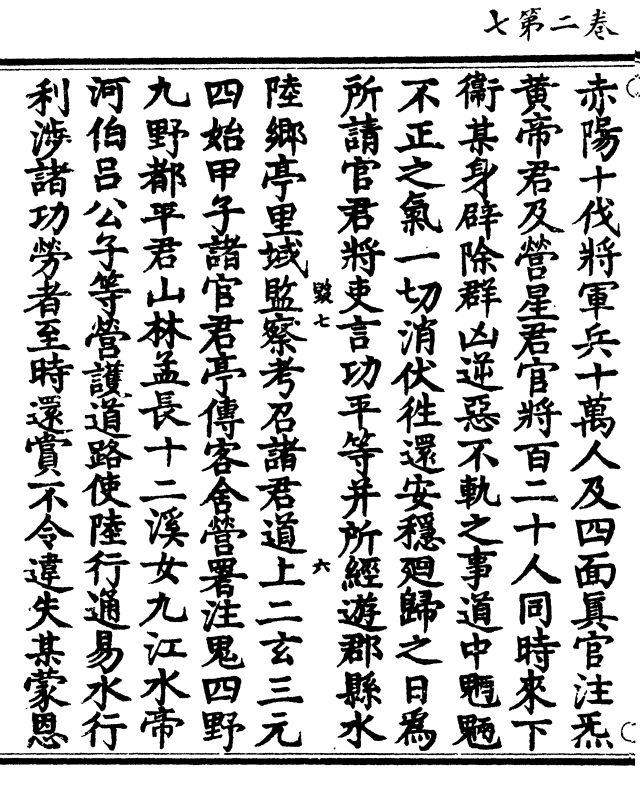 卷二第七
赤陽十伐將軍兵十萬人及四面眞官注炁
黄帝君及營星君官將百二十人同時來下
衞某身辟除群凶逆惡不軌之事道中魍魎
不正之氣一切消伏徃還安穩廻歸之日爲
所請官君將吏言功平等并所經遊郡縣水
毀七 六
陸鄉亭里域監察考召諸君道上二玄三元
四始甲子諸官君亭傳客舍營署注鬼四野
九野都平君山林孟長十二溪女九江水帝
河伯呂公子等營護道路使陸行通易水行
利涉諸功勞者至時還賞不令違失某蒙恩